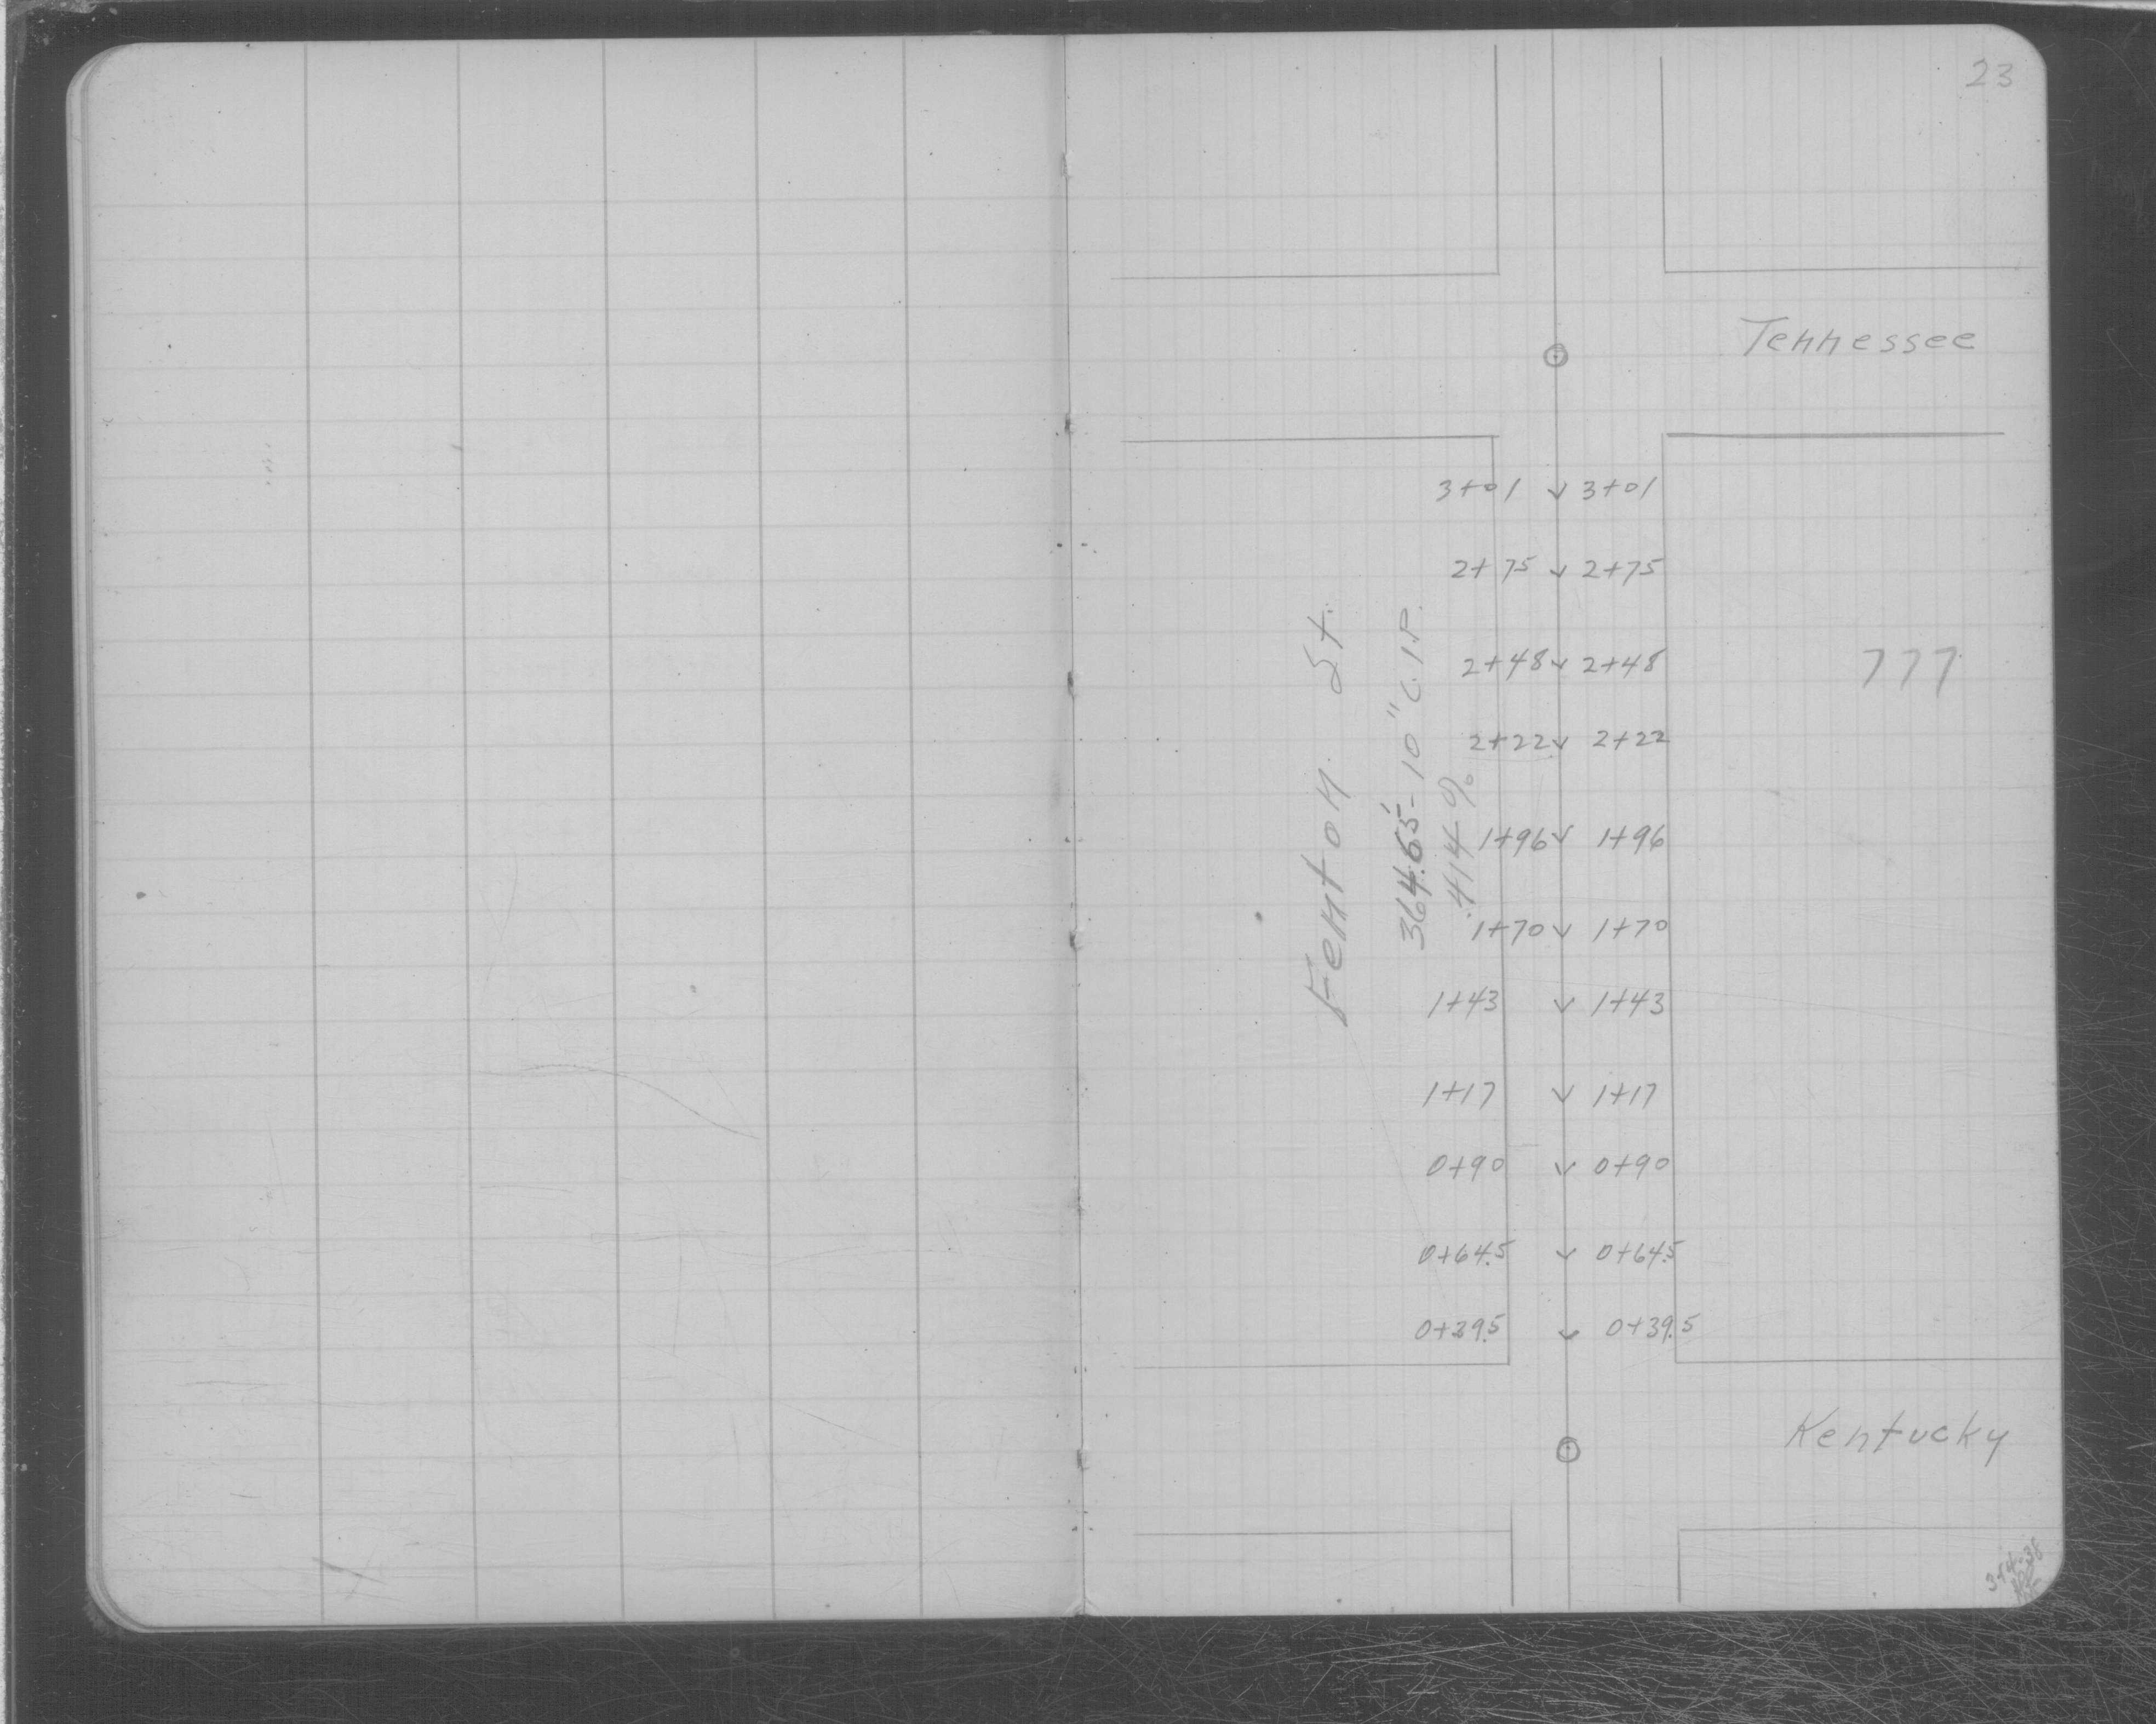 23
Tennessee
3+01 v 3+01
2+75 v 2+75
2+48 v 2+48
777
2+22 v 2+22
1+96 v 1+96
1+70 v 1+70
1+43 v 1+43
1+17 v 1+17
0+90 v 0+90
0+64.5 v 0+64.5
0+39.5 v 0+39.5
Fenton St.
364.65' - 10" C.I.P.
.414 %
Kentucky